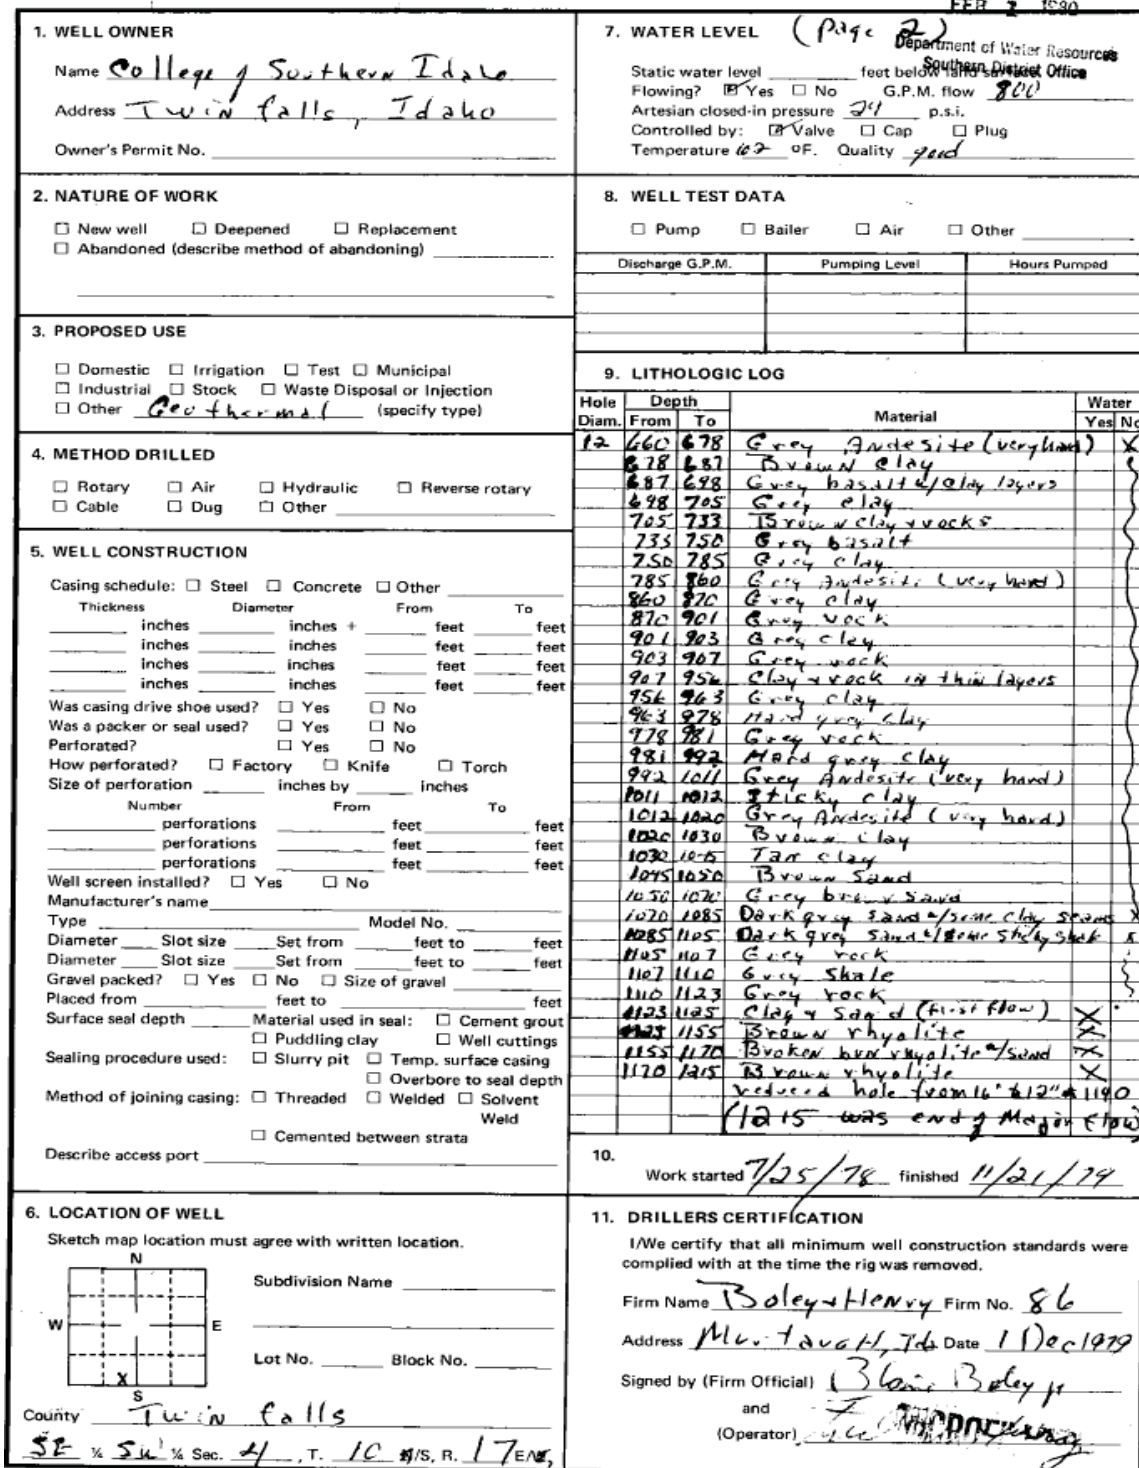 FEB 1980
1. WELL OWNER
Name College of Southern Idaho
Address Twin falls, Idaho
Owner's Permit No.
2. NATURE OF WORK
□ New well □ Deepened □ Replacement
□ Abandoned (describe method of abandoning)
3. PROPOSED USE
□ Domestic □ Irrigation □ Test □ Municipal
□ Industrial □ Stock □ Waste Disposal or Injection
□ Other Geothermal (specify type)
4. METHOD DRILLED
□ Rotary □ Air □ Hydraulic □ Reverse rotary
□ Cable □ Dug □ Other
5. WELL CONSTRUCTION
Casing schedule: □ Steel □ Concrete □ Other
Thickness Diameter From To
inches inches + feet feet
inches inches feet feet
inches inches feet feet
inches inches feet feet
Was casing drive shoe used? □ Yes □ No
Was a packer or seal used? □ Yes □ No
Perforated? □ Yes □ No
How perforated? □ Factory □ Knife □ Torch
Size of perforation inches by inches
Number From To
perforations feet feet
perforations feet feet
perforations feet feet
Well screen installed? □ Yes □ No
Manufacturer's name
Type Model No.
Diameter Slot size Set from feet to feet
Diameter Slot size Set from feet to feet
Gravel packed? □ Yes □ No □ Size of gravel
Placed from feet to feet
Surface seal depth Material used in seal: □ Cement grout
□ Puddling clay □ Well cuttings
Sealing procedure used: □ Slurry pit □ Temp. surface casing
□ Overbore to seal depth
Method of joining casing: □ Threaded □ Welded □ Solvent
Weld
□ Cemented between strata
Describe access port
6. LOCATION OF WELL
Sketch map location must agree with written location.
N
Subdivision Name
W E
Lot No. Block No.
X
S
County Twin falls
SE ¼ SW ¼ Sec. 4, T. 10 N/S, R. 17 E/W,
7. WATER LEVEL (page 2)
Department of Water Resources
Southern District Office
Static water level feet below land surface
Flowing? ☑ Yes □ No G.P.M. flow 800
Artesian closed-in pressure 24 p.s.i.
Controlled by: ☑ Valve □ Cap □ Plug
Temperature 102 °F. Quality good
8. WELL TEST DATA
□ Pump □ Bailer □ Air □ Other
Discharge G.P.M. Pumping Level Hours Pumped
9. LITHOLOGIC LOG
Hole Depth Water
Diam. From To Material Yes No
12 660 678 Grey Andesite (very hard) X
678 687 Brown clay
687 698 Grey basalt w/clay layers
698 705 Grey clay
705 733 Brown clay + rocks
733 750 Grey basalt
750 785 Grey clay
785 860 Grey Andesite (very hard)
860 870 Grey clay
870 901 Grey rock
901 903 Grey clay
903 907 Grey rock
907 956 Clay + rock in thin layers
956 963 Grey clay
963 978 Hard grey clay
978 981 Grey rock
981 992 Hard grey clay
992 1011 Grey Andesite (very hard)
1011 1012 Sticky clay
1012 1020 Grey Andesite (very hard)
1020 1030 Brown clay
1030 1045 Tan clay
1045 1050 Brown Sand
1050 1070 Grey brown Sand
1070 1085 Dark grey sand w/some clay seams X
1085 1105 Dark grey sand w/some sticky shale x
1105 1107 Grey rock
1107 1110 Grey shale
1110 1123 Grey rock
1123 1125 Clay & Sand (first flow) X
1125 1155 Brown rhyolite X
1155 1170 Broken brn rhyolite w/sand X
1170 1215 Brown rhyolite X
reduced hole from 16" to 12" @ 1190
(1215 was end of Major flow)
10.
Work started 7/25/78 finished 11/21/79
11. DRILLERS CERTIFICATION
I/We certify that all minimum well construction standards were
complied with at the time the rig was removed.
Firm Name Boley + Henry Firm No. 86
Address Murtaugh, Id. Date 1 Dec 1979
Signed by (Firm Official) Blaine Boley jr
and
(Operator)